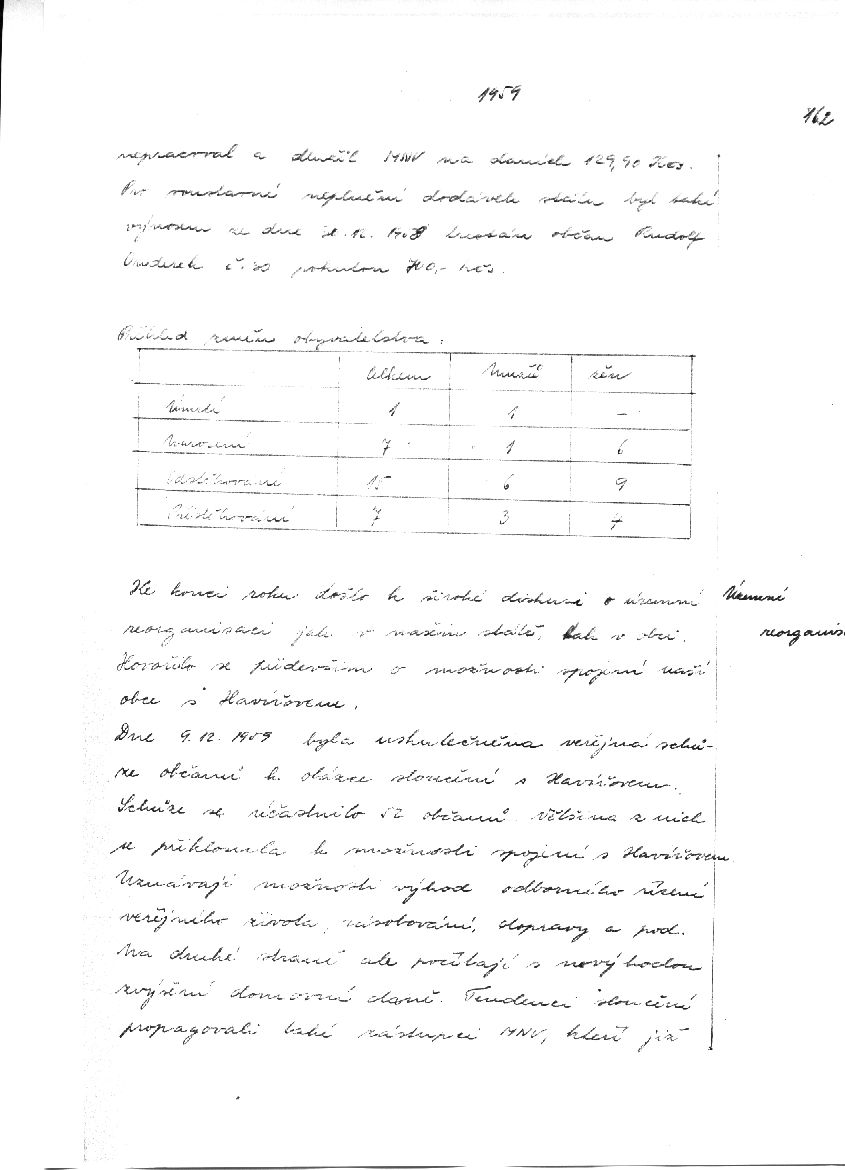 1959
162
nepracoval a dlužil MNV na daních 129,90 Kčs.
Pro soustavné neplnění dodávek státu byl také
výnosem ze dne 12. 1958 trestán občan Rudolf
č. 30 pokutou 700,- Kčs.
Přehled změn obyvatelstva:
Celkem mužů žen
Úmrtí 1 1 -
Narození 7 1 6
Odstěhování 15 6 9
Přistěhování 7 3 4
Ke konci roku došlo k široké diskusi o územní
Územní
reorganisaci jak v našem státě, tak v obci.
reorganis
Hovořilo se především o možnosti spojení naší
obce s Havířovem.
Dne 9.12.1959 byla uskutečněna veřejná schů-
ze občanů k otázce sloučení s Havířovem.
Schůze se účastnilo 52 občanů. Většina z nich
se přiklonila k možnosti spojení s Havířovem
Uznávají možnosti výhod odborného řízení
veřejného života, zásobování, dopravy a pod.
Na druhé straně ale počítají s nevýhodou
zvýšení domovní daně. Tendenci sloučení
propagovali také zástupci MNV, kteří již